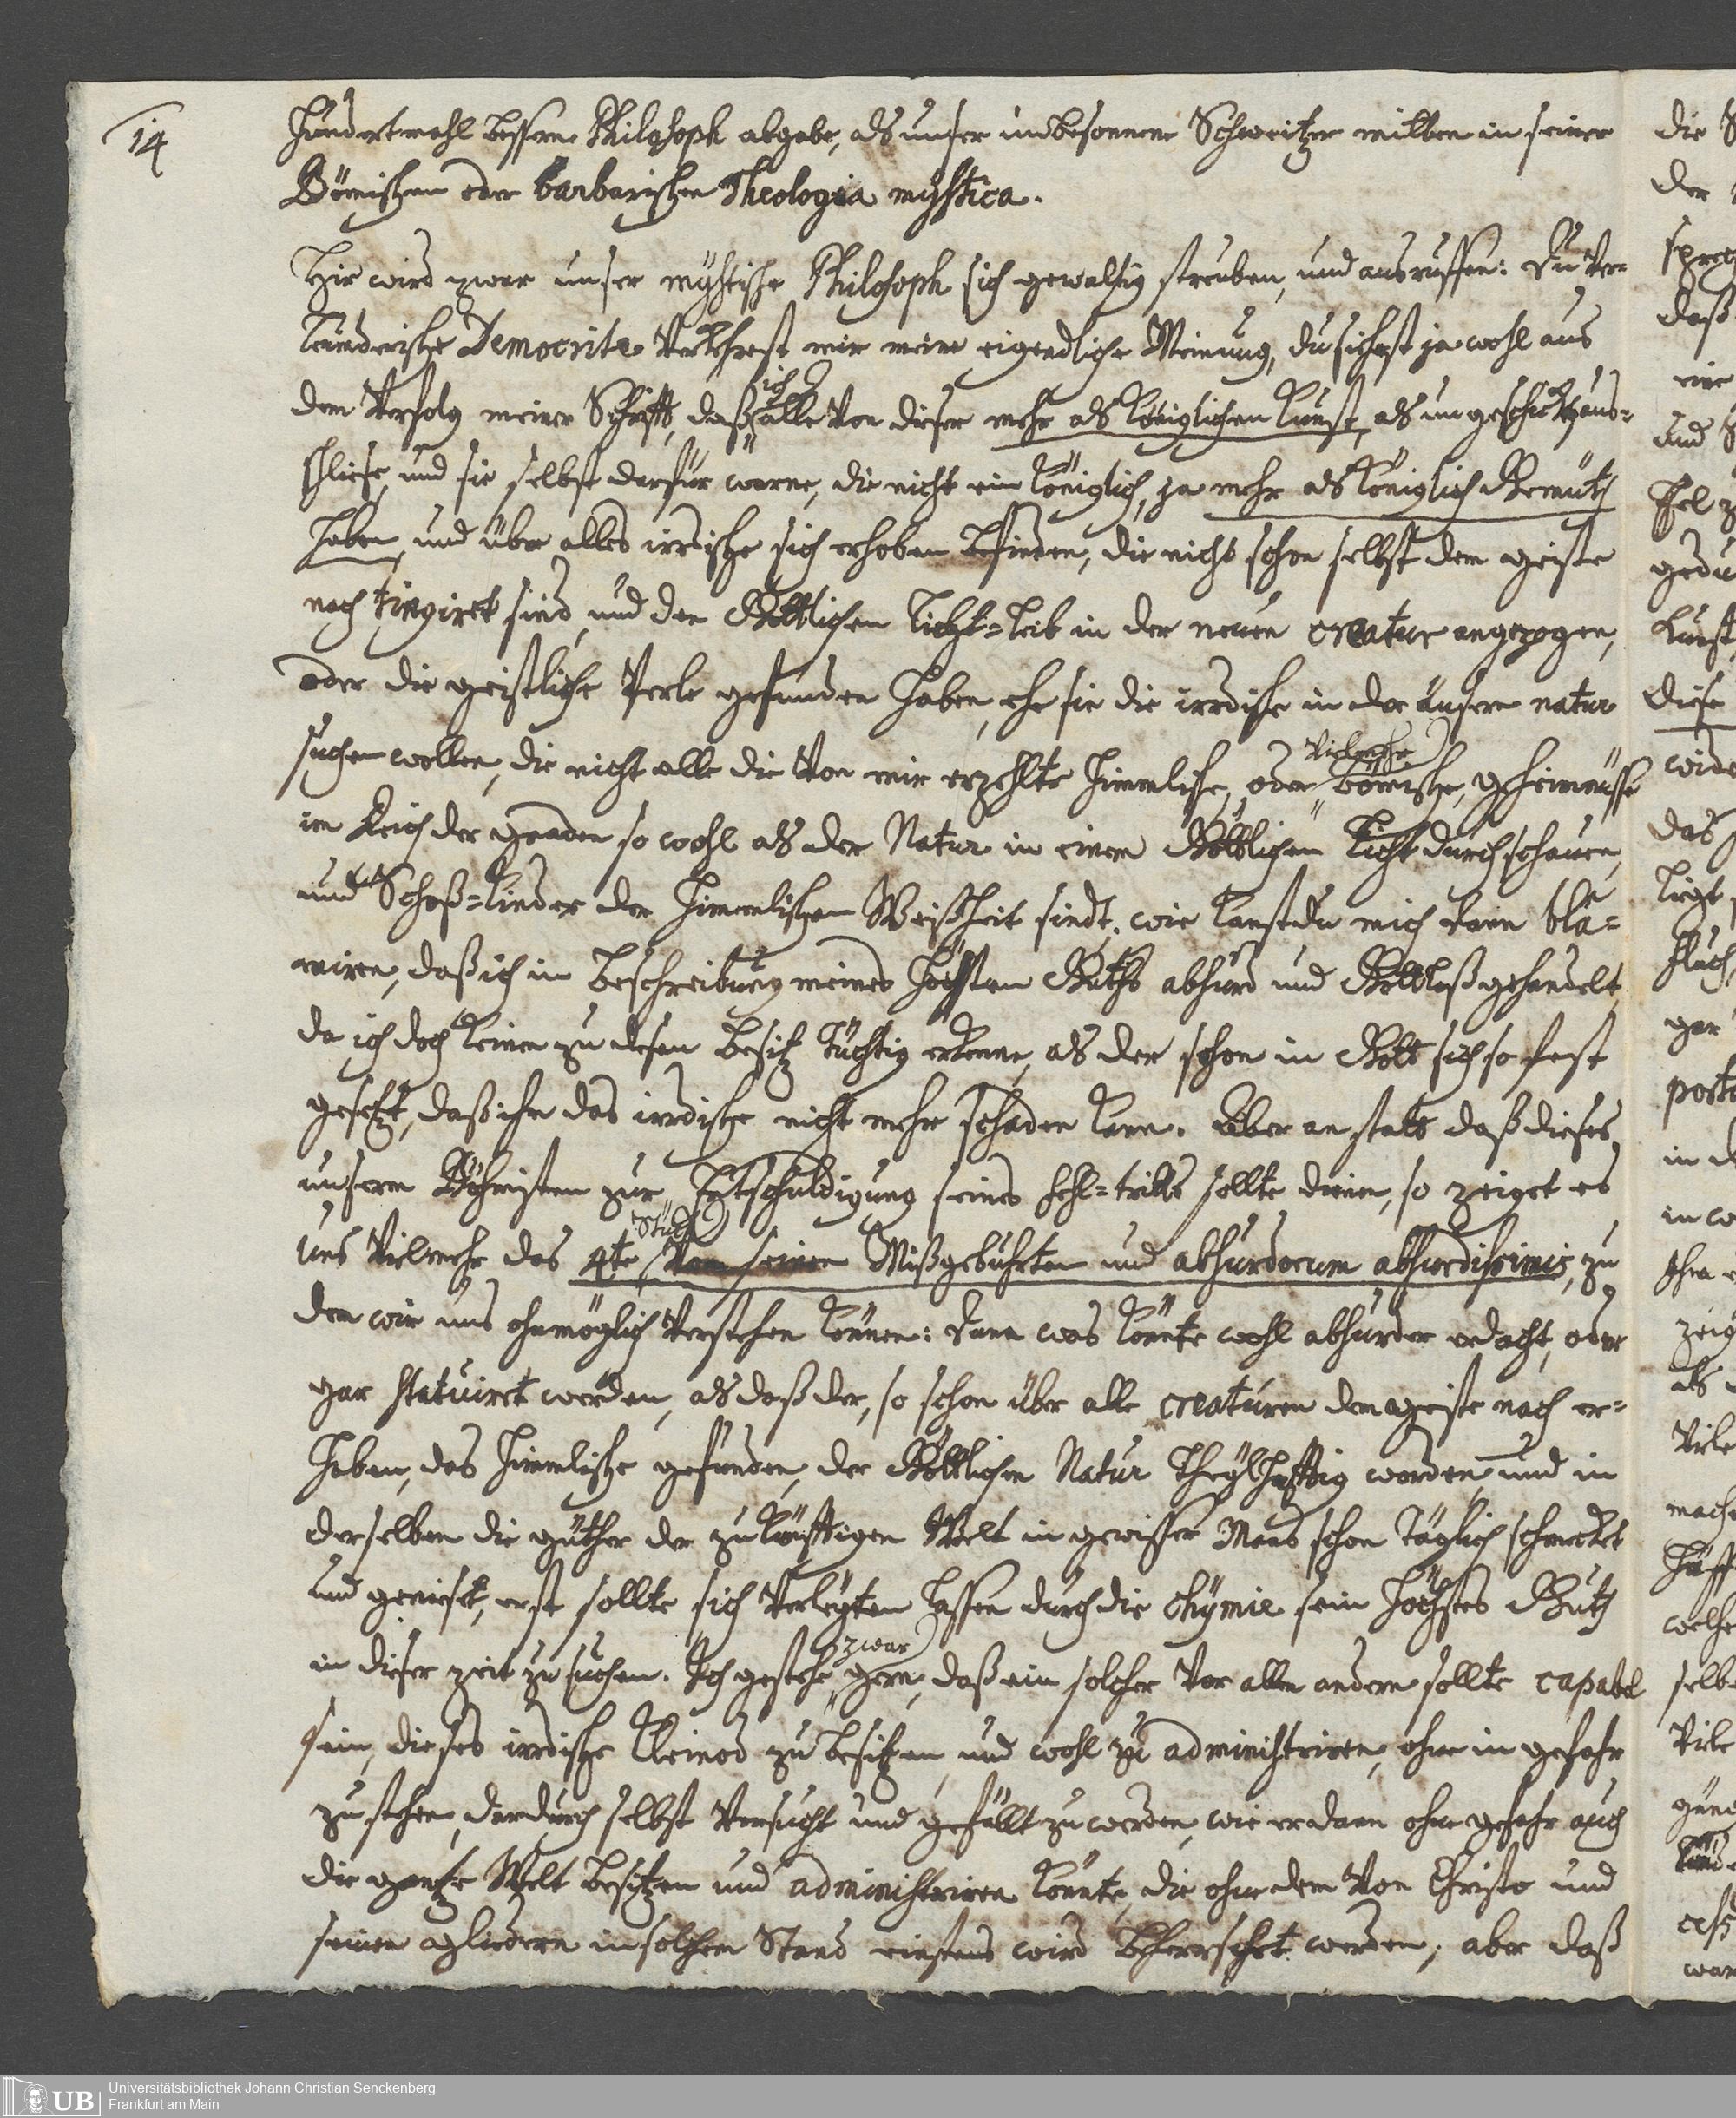 14
hundertmahl bessern Philosoph abgebe, als unser unbesonnene Schweitzer mitten in seiner
Bömischen oder barbarischen Theologia mystica.
Hir wird zwar unser mystische Philosoph sich gewaltig streuben, und ausruffen: Du ver=
leumderische Democrite verkehrest mir meine eigendliche Meinung, du sihest ja wohl aus
dem Verfolg meiner Schrifft, daß ich alle von dieser mehr als königlichen Kunst, als ungeschickt aus=
schliese, und sie selbst darfür warne, die nicht ein königlich, ja mehr als königlich Gemüth
haben, und über alles irrdische sich erhoben befinden, die nicht schon selbst dem geiste
nach tingiret sind, und den Göttlichen Licht=Leib in der neuen creatur angezogen,
oder die geistliche Perle gefunden haben, ehe sie die irrdische in der äusern natur
suchen wollen, die nicht alle die von mir erzehlte himmlische, oder vielmehr bömische, geheimnüsse
im Reich der gnaden so wohl als der Natur in einem Göttlichen Licht durchschauen,
und Schoß=kinder der himmlischen Weißheit sindt. wie kanst du mich dann bla=
miren, daß ich in Beschreibung meines höchsten Guths absurd und Gottloß gehandelt,
da ich doch keinen zu desen Besitz tüchtig erkenne, als der schon in Gott sich so fest
gesetzt, daß ihm das irrdische nicht mehr schaden kann. Aber an statt daß dieses
unserm Böhmisten zur Entschuldigung seines fehl=tritts sollte dienen, so zeiget es
uns vielmehr das 4te Stück von seinen Mißgebuhrten und absurdorum absurdissimis, zu
dem wir uns ohnmöglich verstehen können: Dann was könte wohl absurder erdacht, oder
gar statuiret werden, als daß der, so schon über alle creaturen dem geiste nach er=
haben, das himmlische gefunden, der Göttlichen Natur theylhafftig worden, und in
derselben die güther der zukünfftigen Welt in gewisser Maas schon täglich schmecket
und geniest, erst sollte sich verleyten lassen durch die chymie sein höchstes Guth
in dieser zeit zu suchen. Ich gestehe zwar gern, daß ein solcher vor allen andern sollte capabel
sein, dieses irrdische Kleinod zu besitzen, und wohl zu administriren, ohne in gefahr
zu stehen, dardurch selbst versucht und gefällt zu werden, wie er dann ohne gefahr auch
die gantze Welt besitzen und administriren könnte, die ohne dem von Christo und
seinen gliedern in solchem Stand einstens wird beherrschet werden; aber daß
UB
Universitätsbibliothek Johann Christian Senckenberg
Frankfurt am Main